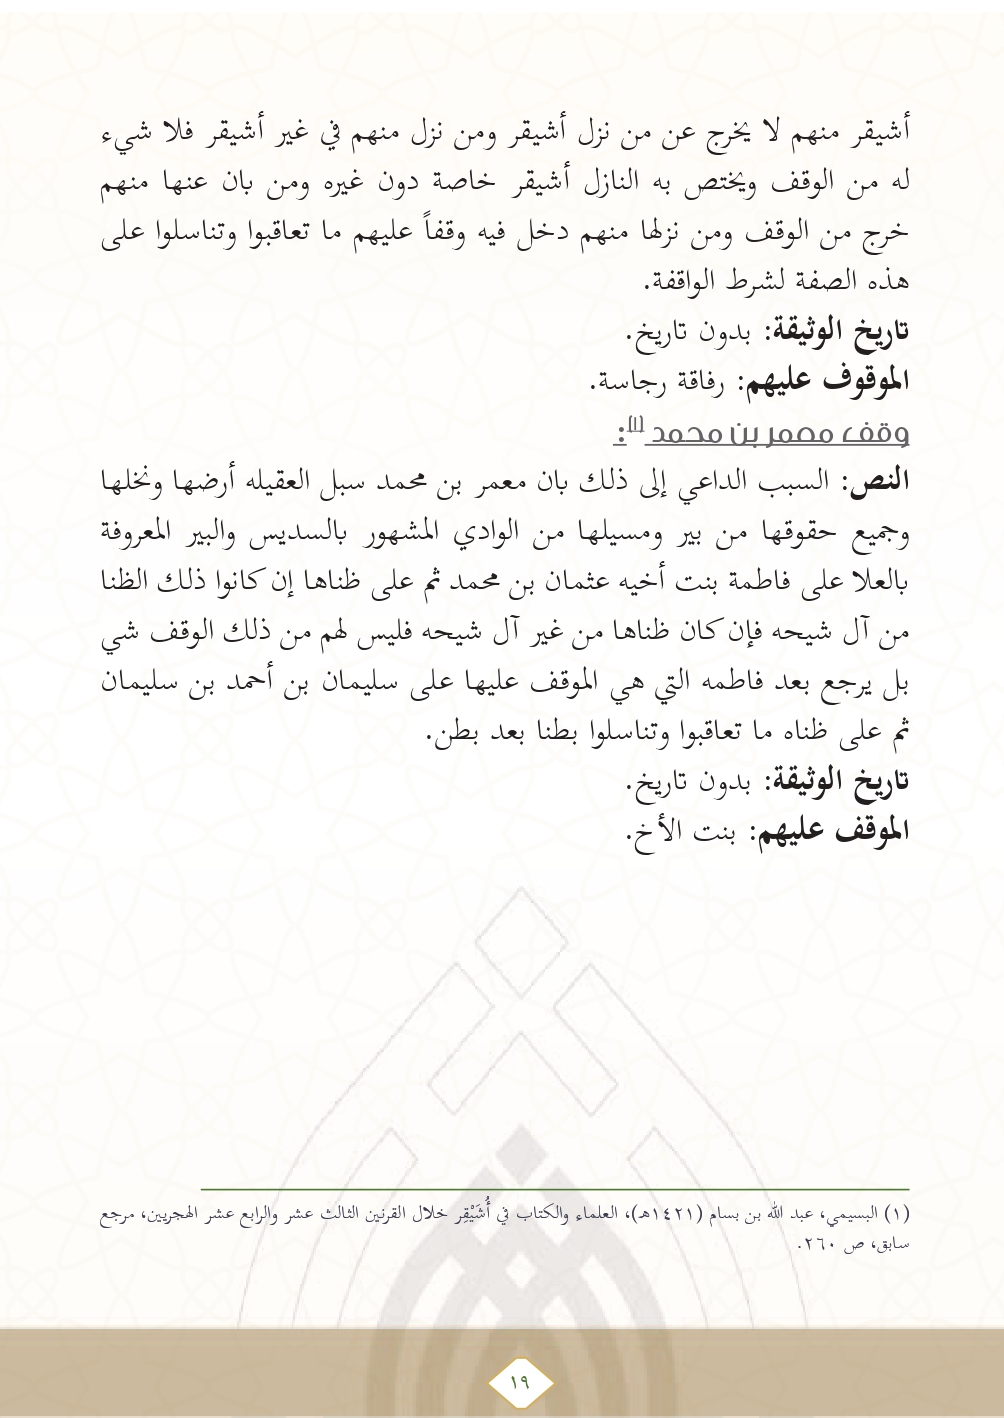 أشيقر منهم لا يخرج عن من نزل أشيقر ومن نزل منهم في غير أشيقر فلا شيء
له من الوقف ويختص به النازل أشيقر خاصة دون غيره ومن بان عنها منهم
خرج من الوقف ومن نزلها منهم دخل فيه وقفاً عليهم ما تعاقبوا وتناسلوا على
هذه الصفة لشرط الواقفة.
تاريخ الوثيقة: بدون تاريخ.
الموقوف عليهم: رفاقة رجاسة.
وقف معمر بن محمد (١):
النص: السبب الداعي إلى ذلك بان معمر بن محمد سبل العقيله أرضها ونخلها
وجميع حقوقها من بير ومسيلها من الوادي المشهور بالسديس والبير المعروفة
بالعلا على فاطمة بنت أخيه عثمان بن محمد ثم على ظناها إن كانوا ذلك الظنا
من آل شيحه فإن كان ظناها من غير آل شيحه فليس لهم من ذلك الوقف شي
بل يرجع بعد فاطمه التي هي الموقف عليها على سليمان بن أحمد بن سليمان
ثم على ظناه ما تعاقبوا وتناسلوا بطنا بعد بطن.
تاريخ الوثيقة: بدون تاريخ.
الموقف عليهم: بنت الأخ.
(١) البسيمي، عبد الله بن بسام (١٤٢١هـ)، العلماء والكتاب في أُشَيْقِر خلال القرنين الثالث عشر والرابع عشر الهجريين، مرجع
سابق، ص ٢٦٠.
١٩